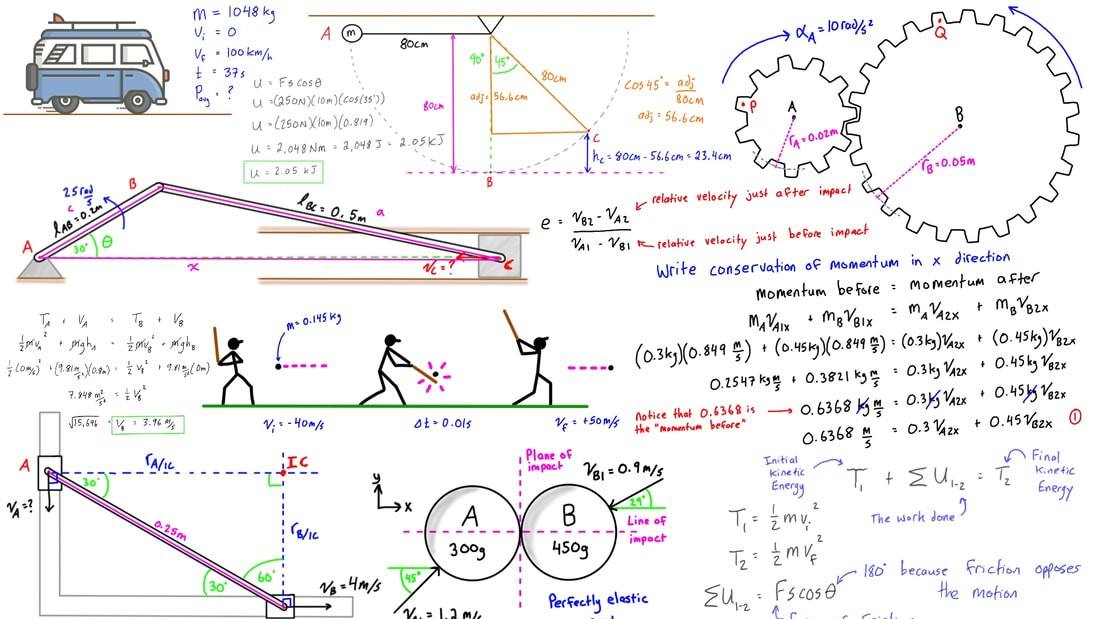 m = 1048 kg
Vi = 0
Vf = 100 km/h
t = 37s
Pavg = ?
U = Fscosθ
U = (250N)(10m)(cos(35°))
U = (250N)(10m)(0.819)
U = 2,048 Nm = 2,048 J = 2.05 kJ
U = 2.05 kJ
A
m
80cm
90°
45°
80cm
80cm
adj = 56.6cm
C
hc = 80cm - 56.6cm = 23.4cm
B
cos45° = adj/80cm
adj = 56.6cm
αA = 10 rad/s²
P
A
rA = 0.02m
Q
B
rB = 0.05m
25 rad/s
B
c
lAB = 0.2m
A
30°
θ
lBC = 0.5m
a
x
vc = ?
C
e = (vB2 - vA2)/(vA1 - vB1)
relative velocity just after impact
relative velocity just before impact
Write conservation of momentum in x direction
momentum before = momentum after
mAVA1x + mBVB1x = mAVA2x + mBVB2x
(0.3kg)(0.849 m/s) + (0.45kg)(0.849 m/s) = (0.3kg)VA2x + (0.45kg)VB2x
0.2547 kg m/s + 0.3821 kg m/s = 0.3kg VA2x + 0.45kg VB2x
0.6368 kg m/s = 0.3kg VA2x + 0.45kg VB2x
0.6368 m/s = 0.3VA2x + 0.45VB2x
1
Notice that 0.6368 is
the "momentum before"
TA + VA = TB + VB
½mvA² + mghA = ½mvB² + mghB
½(0m/s)² + (9.81m/s²)(0.8m) = ½VB² + 9.81m/s²(0m)
7.848 m²/s² = ½VB²
√15,696 = VB = 3.96 m/s
m = 0.145 kg
vi = -40m/s
Δt = 0.01s
vf = +50m/s
A
rA/IC
IC
30°
vA = ?
0.25m
rB/IC
30°
60°
vB = 4m/s
y
x
Plane of
impact
vB1 = 0.9 m/s
29°
A
300g
B
450g
Line of
impact
45°
1.2 m/s
Perfectly elastic
Initial
Kinetic
Energy
T1 + ΣU1-2 = T2
Final
Kinetic
Energy
The work done
T1 = ½mvi²
T2 = ½mvf²
ΣU1-2 = Fscosθ
180° because friction opposes
the motion